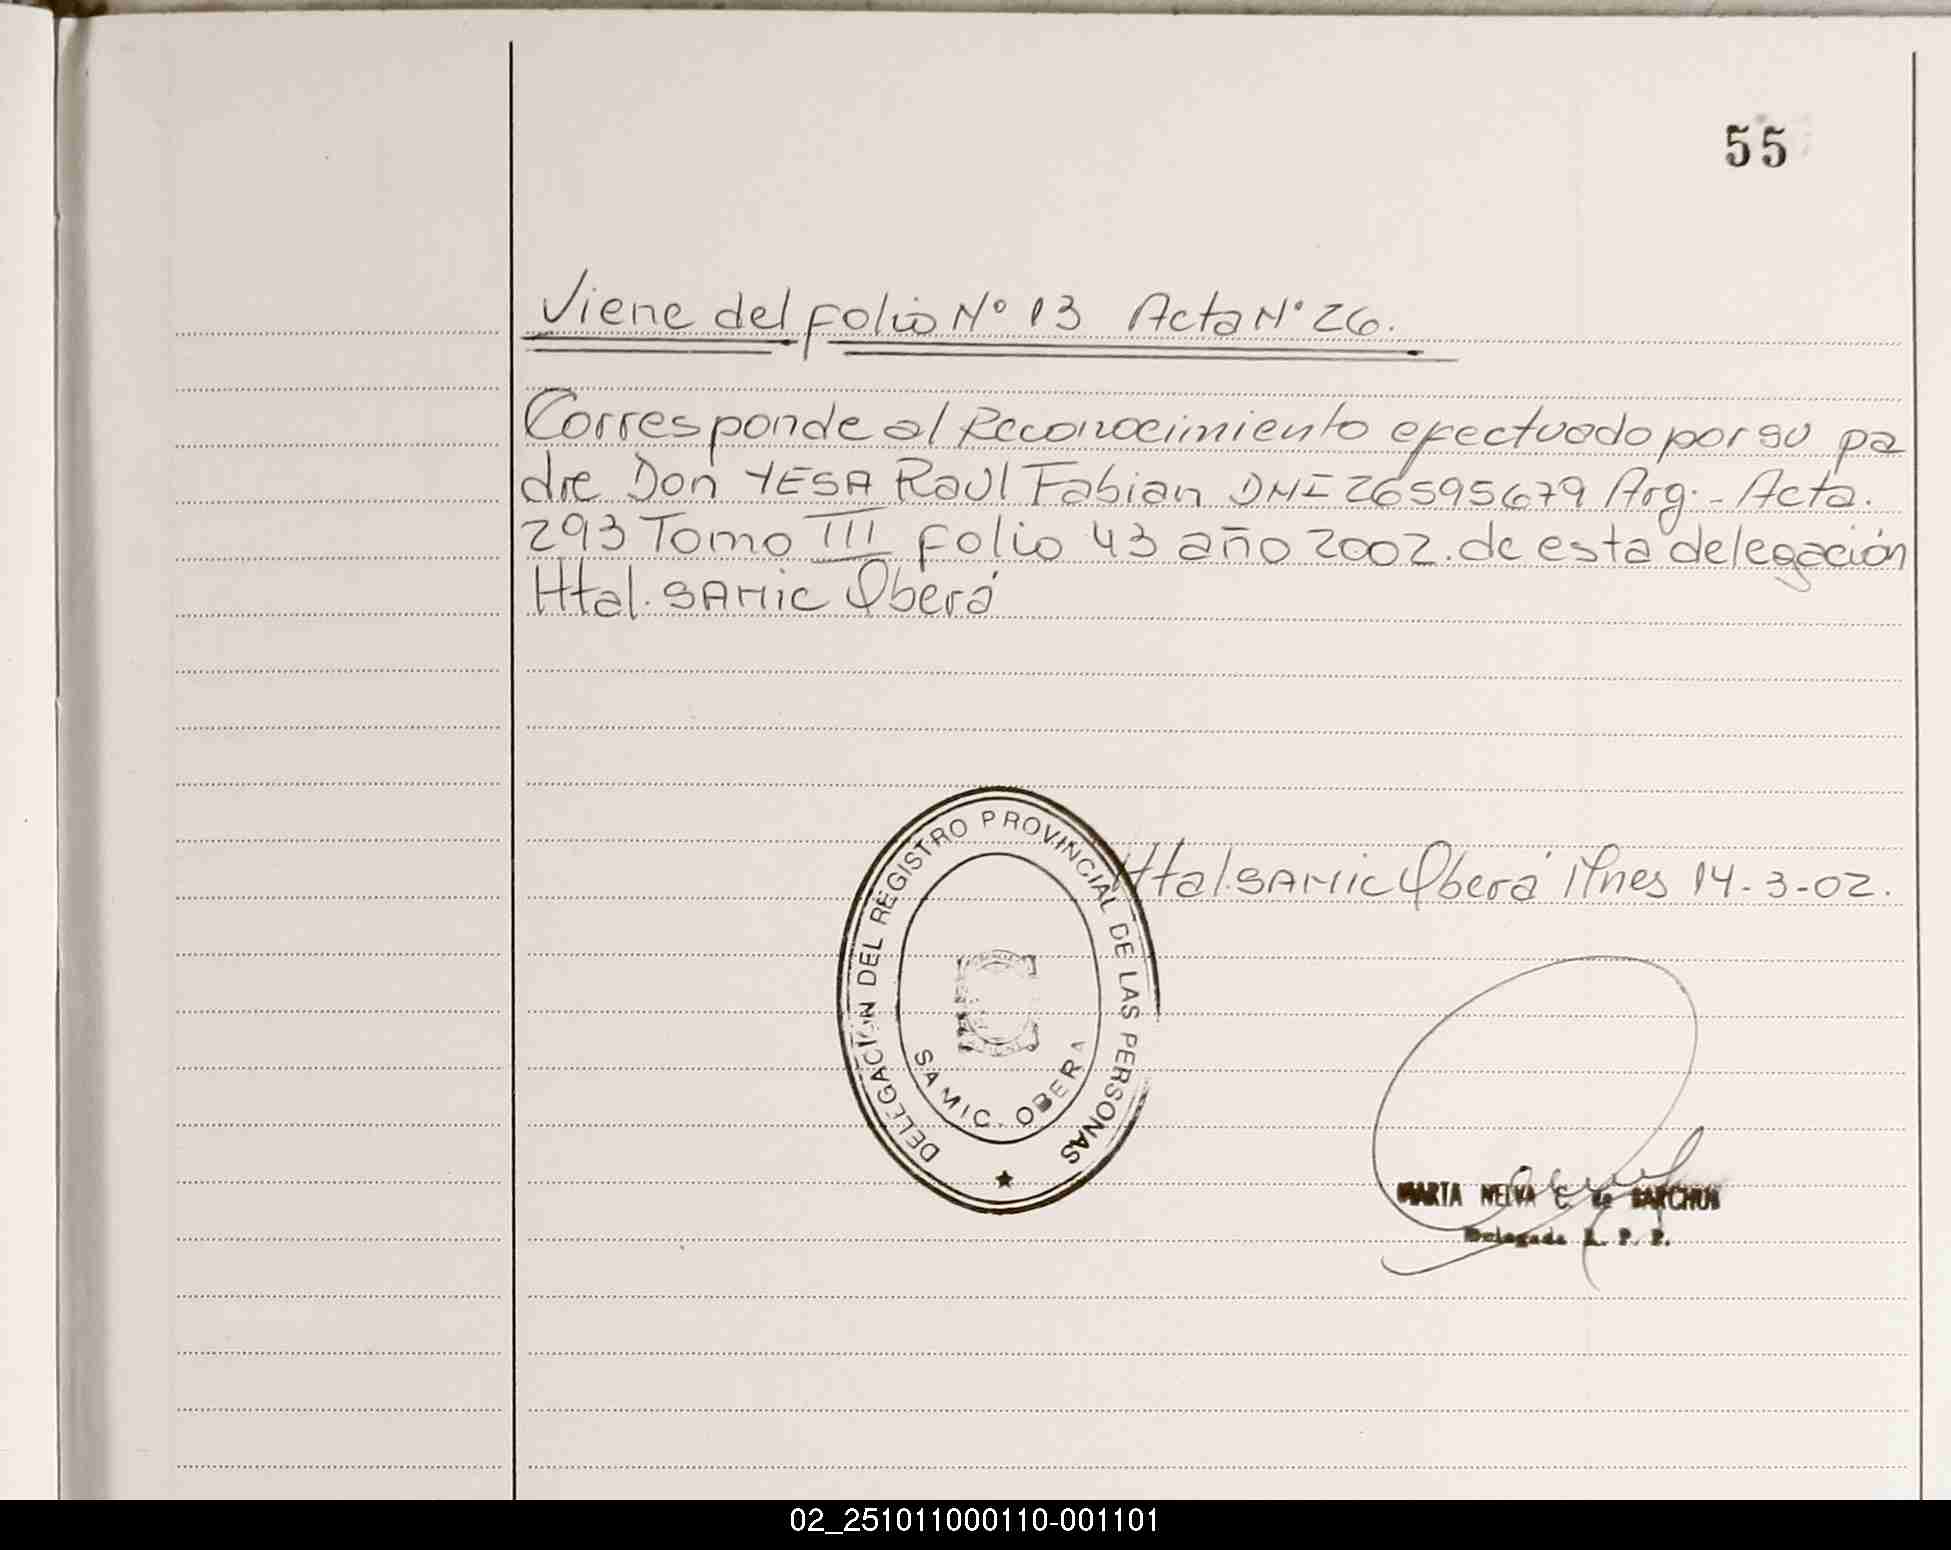 55
Viene del folio Nº 13 Acta Nº 26.
Corresponde al Reconocimiento efectuado por su pa
dre Don YESA Raul Fabian DNI 26595679 Arg.- Acta.
293 Tomo III folio 43 año 2002. de esta delegación
Htal. SAMic Oberá
Htal. SAMic Oberá Mnes 14-3-02.
DELEGACION DEL REGISTRO PROVINCIAL DE LAS PERSONAS
SAMIC. OBERA
MARTA NELVA C. de BARCHUK
Delegada R. P. P.
02_251011000110-001101